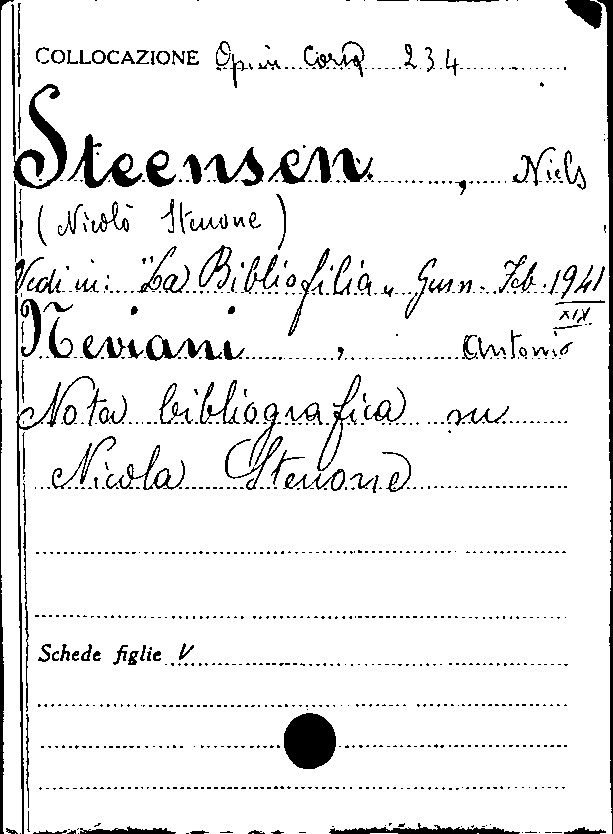 COLLOCAZIONE Opus. Corsq 234
Steensen. , Niels
(Nicolò Stenone)
Vedi in: "La Bibliofilia„ Genn. Feb. 1941
XIX
Neviani , Antonio
Nota bibliografica su
Nicola Stenone
Schede figlie V